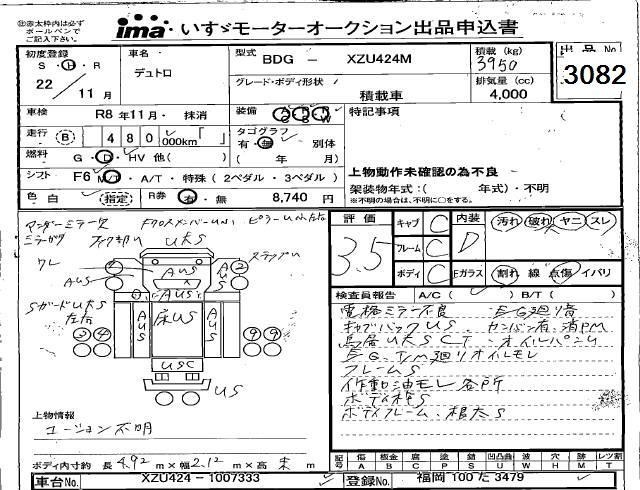 ㊟赤太枠内は必ず
ボールペンで
ご記入下さい。
ima いすゞモーターオークション出品申込書
初度登録
S・H・R
22 / 11 月
車名
デュトロ
型式
BDG － XZU424M
グレード・ボディ形状
積載車
積載 (kg)
3950
排気量 (cc)
4,000
出品No
3082
車検 R8 年 11 月・ 抹消
装備
特記事項
走行 (B) 480,000km「 」
タコグラフ
有・無 別体
( 年 月)
燃料 G・D・HV 他( )
シフト F6 M/T・A/T・特殊 (2ペダル・3ペダル)
上物動作未確認の為不良
架装物年式:( 年式)・不明
※不明の場合は、年式不明に○をする。
色 白 (指定) R券 有・無 8,740 円
評価
3.5
キャブ C
フレーム C
ボディ C
内装 D
汚れ 破れ ヤニ スレ
Eガラス
割れ 線 点傷 イバリ
検査員報告 A/C( ) B/T( )
電格ミラー不良 E/G廻り音
キャブバックUS、カンバン有、消PM
鳥居UKSCT オイルパンU
E/G、T/M廻りオイルモレ
フレームS
作動油モレ各所
ボディ枠S
ボディフレーム、根太S
アンダーミラー欠
UKS
AUS
床US
USC
US
Sガードリ UKS
左右
上物情報
ユーション不明
ボディ内寸約 長 4.92 m×幅 2.12 m×高 未 m
記号 傷 板金 腐 塗 錆 凹凸曲 波 穴 跡 レツ割
A B C P S U W H M T
車台No. XZU424－1007333
登録No. 福岡 100 た 3479